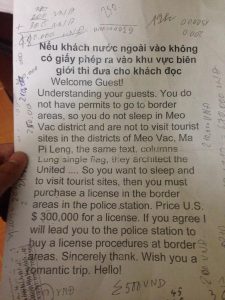 Nếu khách nước ngoài vào không
có giấy phép ra vào khu vực biên
giới thì đưa cho khách đọc
Welcome Guest!
Understanding your guests. You do
not have permits to go to border
areas, so you do not sleep in Meo
Vac district and are not to visit tourist
sites in the districts of Meo Vac. Ma
Pi Leng, the same text, columns
Lung single flag, they architect the
United .... So you want to sleep and
to visit tourist sites, then you must
purchase a license in the border
areas in the police station. Price U.S.
$ 300,000 for a license. If you agree I
will lead you to the police station to
buy a license procedures at border
areas. Sincerely thank. Wish you a
romantic trip. Hello!